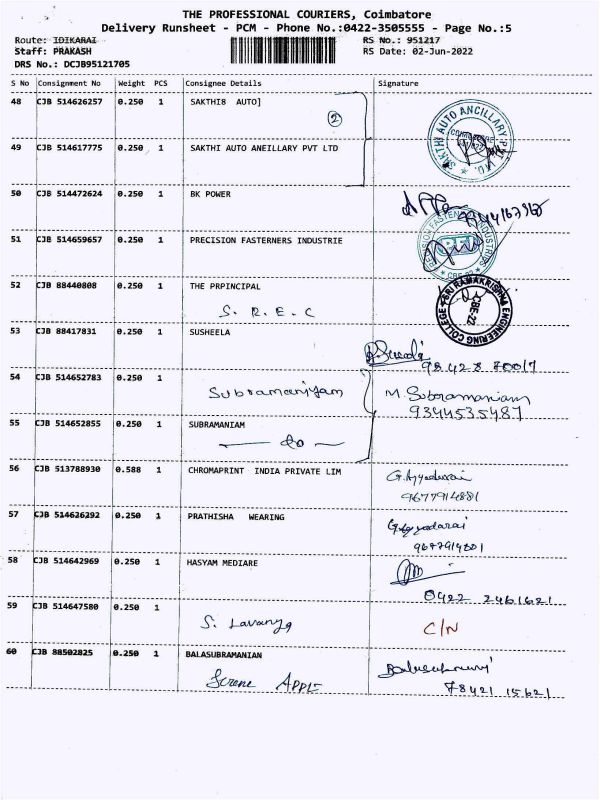 THE PROFESSIONAL COURIERS, Coimbatore
Delivery Runsheet - PCM - Phone No.:0422-3505555 - Page No.:5
Route: IDIKARAI RS No.: 951217
Staff: PRAKASH RS Date: 02-Jun-2022
DRS No.: DCJB95121705
S No Consignment No Weight PCS Consignee Details Signature
48 CJB 514626257 0.250 1 SAKTHI8 AUTO]
2
SAKTHI AUTO ANCILLARY PVT. LTD.
49 CJB 514617775 0.250 1 SAKTHI AUTO ANEILLARY PVT LTD
50 CJB 514472624 0.250 1 BK POWER
51 CJB 514659657 0.250 1 PRECISION FASTERNERS INDUSTRIE
PRECISION FASTENERS INDUSTRIES
52 CJB 88440808 0.250 1 THE PRPINCIPAL
S. R. E. C
SRI RAMAKRISHNA ENGINEERING COLLEGE
CBE-22
53 CJB 88417831 0.250 1 SUSHEELA
98428 70017
54 CJB 514652783 0.250 1
Subramaniyam M. Subramaniam
9344535487
55 CJB 514652855 0.250 1 SUBRAMANIAM
do
56 CJB 513788930 0.588 1 CHROMAPRINT INDIA PRIVATE LIM
9677914881
57 CJB 514626292 0.250 1 PRATHISHA WEARING
58 CJB 514642969 0.250 1 HASYAM MEDIARE
0422 2461621
59 CJB 514647580 0.250 1
S. Lavanya C/N
60 CJB 88502825 0.250 1 BALASUBRAMANIAN
APPLE
78421 15621